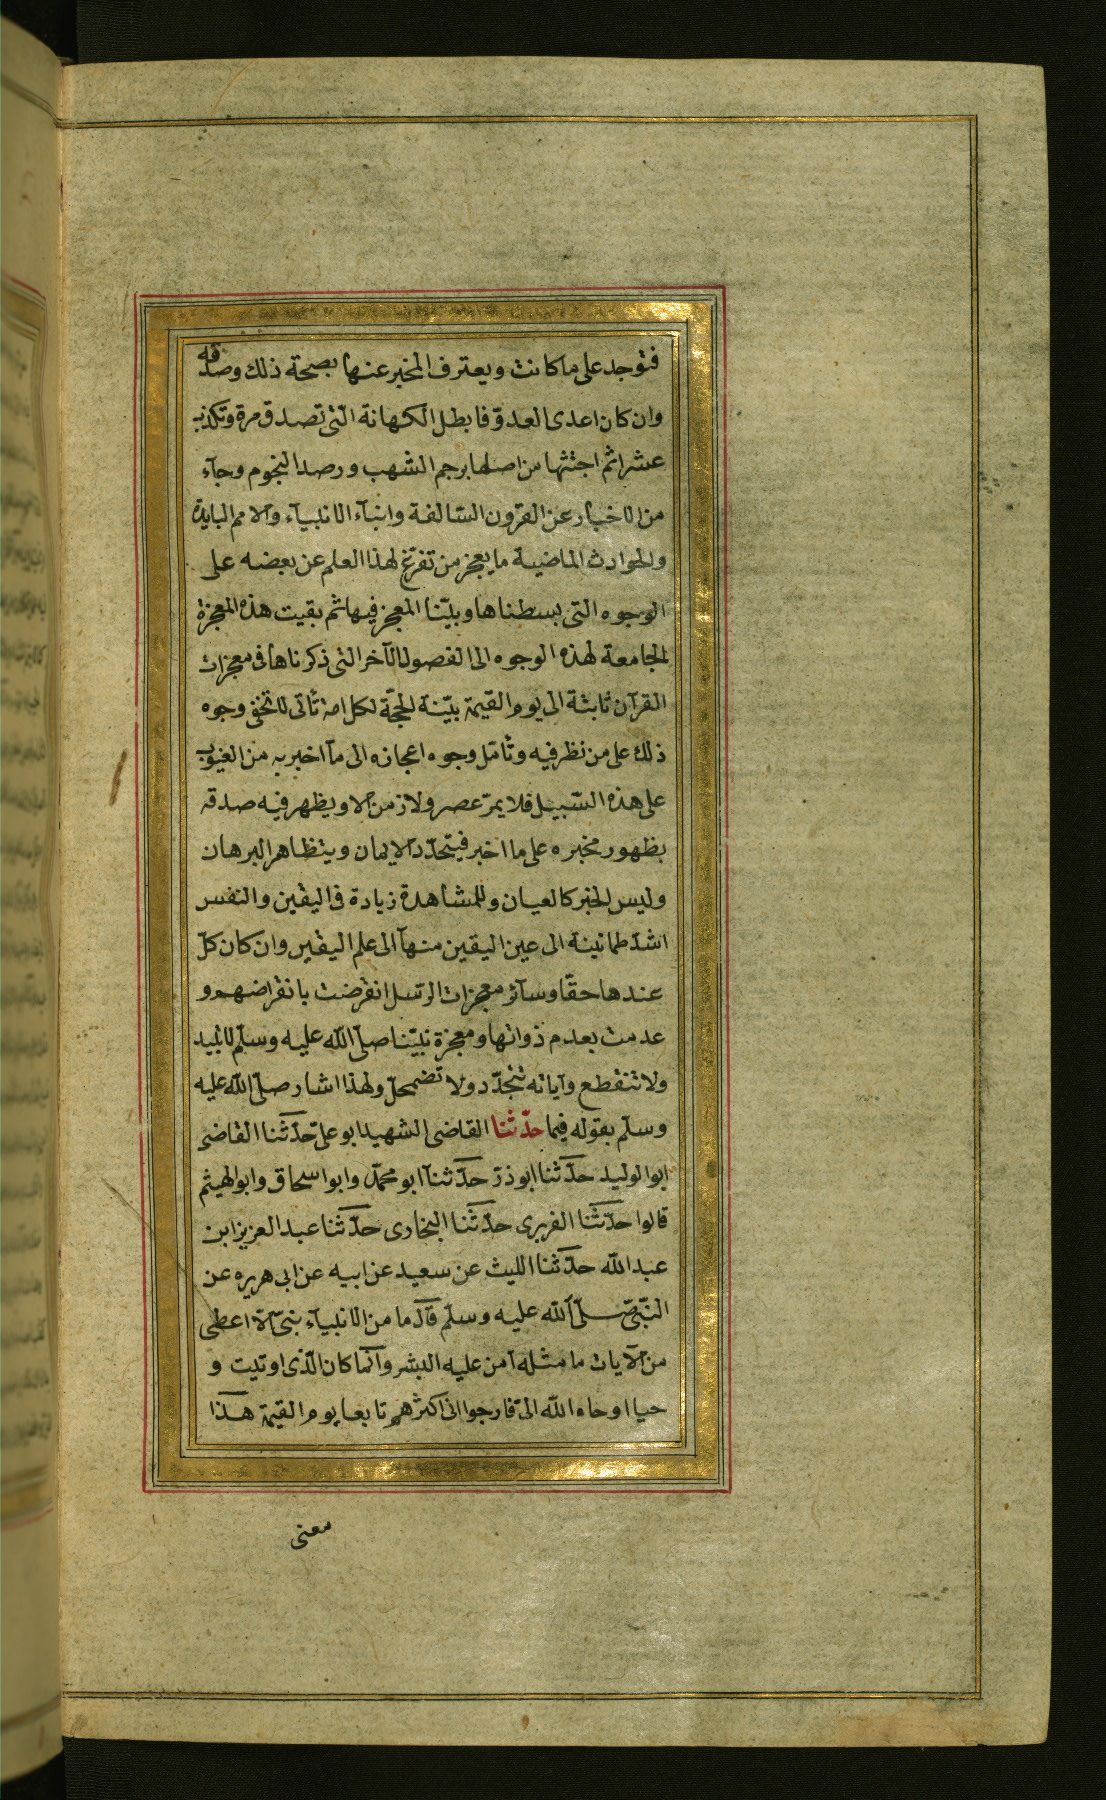 فتوجد على ما كانت ويعترف المخبر عنها بصحة ذلك وصدقه
وان كان اعدى العدوّ فابطل الكهانة التى تصدق مرة وتكذب
عشرا ثم اجتثها من اصلها برجم الشهب ورصد النجوم وجآء
من الاخبار عن القرون السّالفة وانبآء الانبيآء والامم البايدة
والحوادث الماضية ما يعجز من تفرّغ لهذا العلم عن بعضه على
الوجوه التى بسطناها وبيّنا المعجز فيها ثم بقيت هذه المعجزة
الجامعة لهذه الوجوه الى الفصول الآخر التى ذكرناها فى معجزات
القرآن ثابتة الى يوم القيمة بيّنة الحجّة لكل امة تأتى لا تخفى وجوه
ذلك على من نظر فيه وتأمّل وجوه اعجازه الى مآ اخبر به من الغيوب
على هذه السّبيل فلا يمرّ عصر ولا زمن الا ويظهر فيه صدقه
بظهور مخبره على ما اخبر فيتجدّد الايمان ويتظاهر البرهان
وليس الخبر كالعيان وللمشاهدة زيادة فى اليقين والنفس
اشدّ طمانينة الى عين اليقين منهآ الى علم اليقين وان كان كلّ
عندها حقّا وسآئر معجزات الرّسل انقرضت بانقراضهم و
عدمت بعدم ذواتها ومعجزة نبيّنا صلّى الله عليه وسلّم لا تبيد
ولا تنقطع وآياته تتجدّد ولا تضمحلّ ولهذا اشار صلّى الله عليه
وسلّم بقوله فيما حدّثنا القاضى الشهيد ابو علىّ حدّثنا القاضى
ابو الوليد حدّثنا ابو ذرّ حدّثنآ ابو محمّد وابو اسحاق وابو الهيثم
قالوا حدّثنا الفربرى حدّثنا البخارى حدّثنا عبد العزيز ابن
عبد الله حدّثنا الليث عن سعيد عن ابيه عن ابى هريره عن
النّبىّ صلّى الله عليه وسلّم قال ما من الانبيآء نبىّ الّا اعطى
من الآيات ما مثله آمن عليه البشر وانّما كان الّذى اوتيت و
حيا اوحاه الله الىّ فارجوا انى اكثرهم تابعا يوم القيمة هذا
معنى